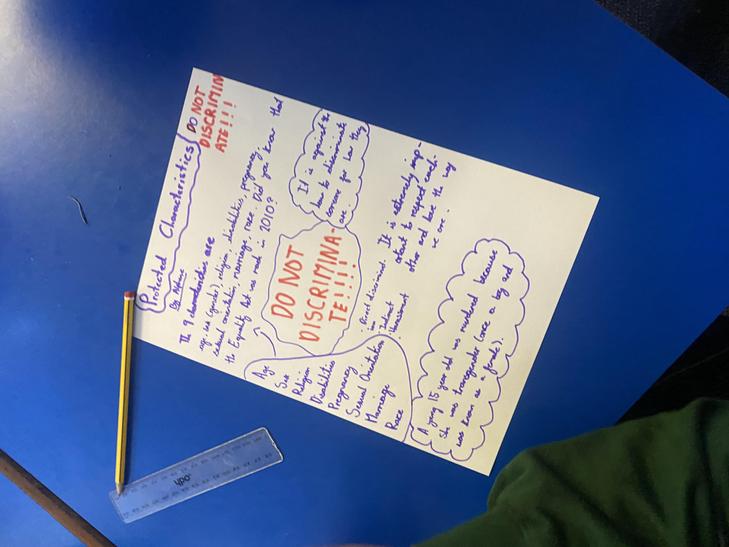 Protected Characteristics
DO NOT
DISCRIMIN
ATE!!!
The 9 characteristics are
age, sex (gender), religion, disabilities, pregnancy,
sexual orientation, marriage, race. Did you know that
the Equality Act was made in 2010?
It is against the
law to discriminate
for how they
are.
DO NOT
DISCRIMINA-
TE!!!!
Age
Sex
Religion
Disabilities
Pregnancy
Sexual Orientation
Marriage
Race
Direct discrimi
ion
Indirect
Harassment
It is extremely imp-
ortant to respect each-
other and love the way
we are.
A young 15 year old was murdered because
she was transgender (once a boy and
was known as a female).
ypo